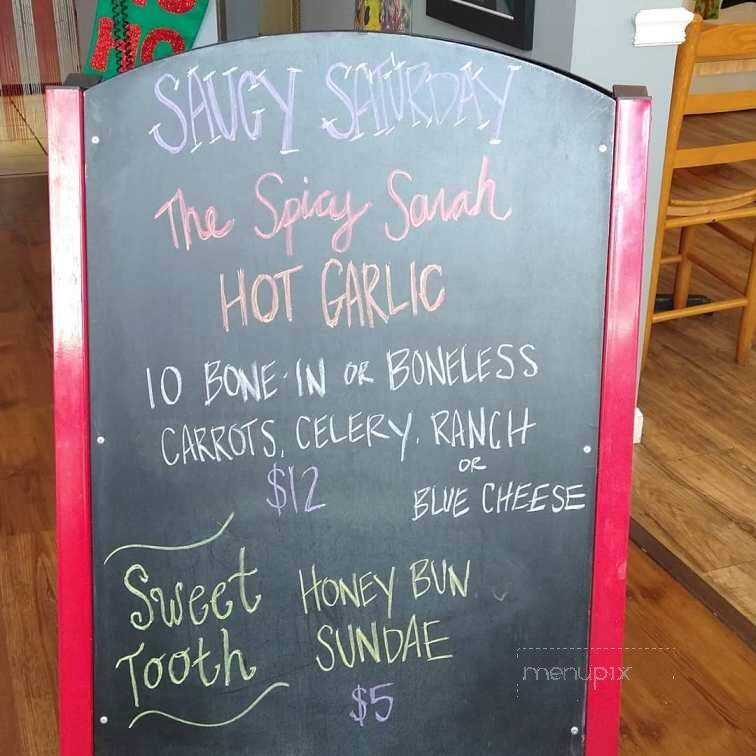 HO
HO
SAUCY SATURDAY
The Spicy Sarah
HOT GARLIC
10 BONE-IN OR BONELESS
CARROTS, CELERY, RANCH
OR
$12 BLUE CHEESE
Sweet
Tooth
HONEY BUN
SUNDAE
$5
menupix